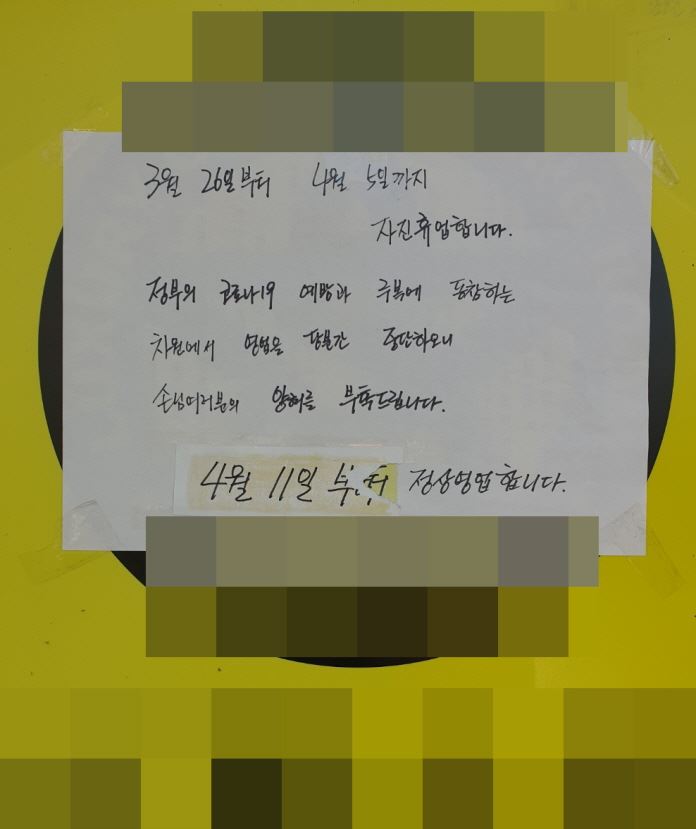 3월 26일부터 4월 5일까지
자진휴업합니다.
정부의 코로나19 예방과 극복에 동참하는
차원에서 영업을 당분간 중단하오니
손님여러분의 양해를 부탁드립니다.
4월 11일 부터 정상영업합니다.